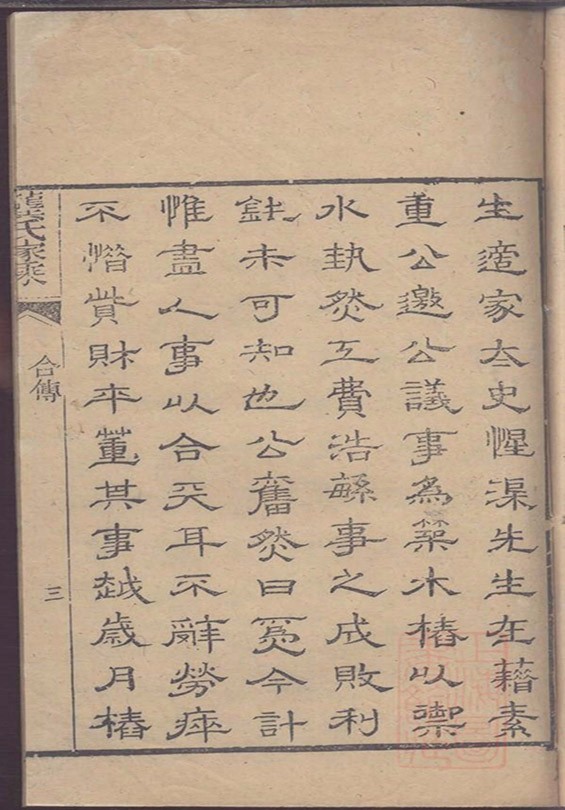 生適家太史惺渠先生在藉素
重公邀公議事為築木樁以禦
水埶然工費浩緐事之成敗利
鈍未可知也公奮然曰爲今計
惟盡人事以合天耳不辭勞瘁
不惜貲財卒董其事越歲月樁
氏家乘
合傳
三